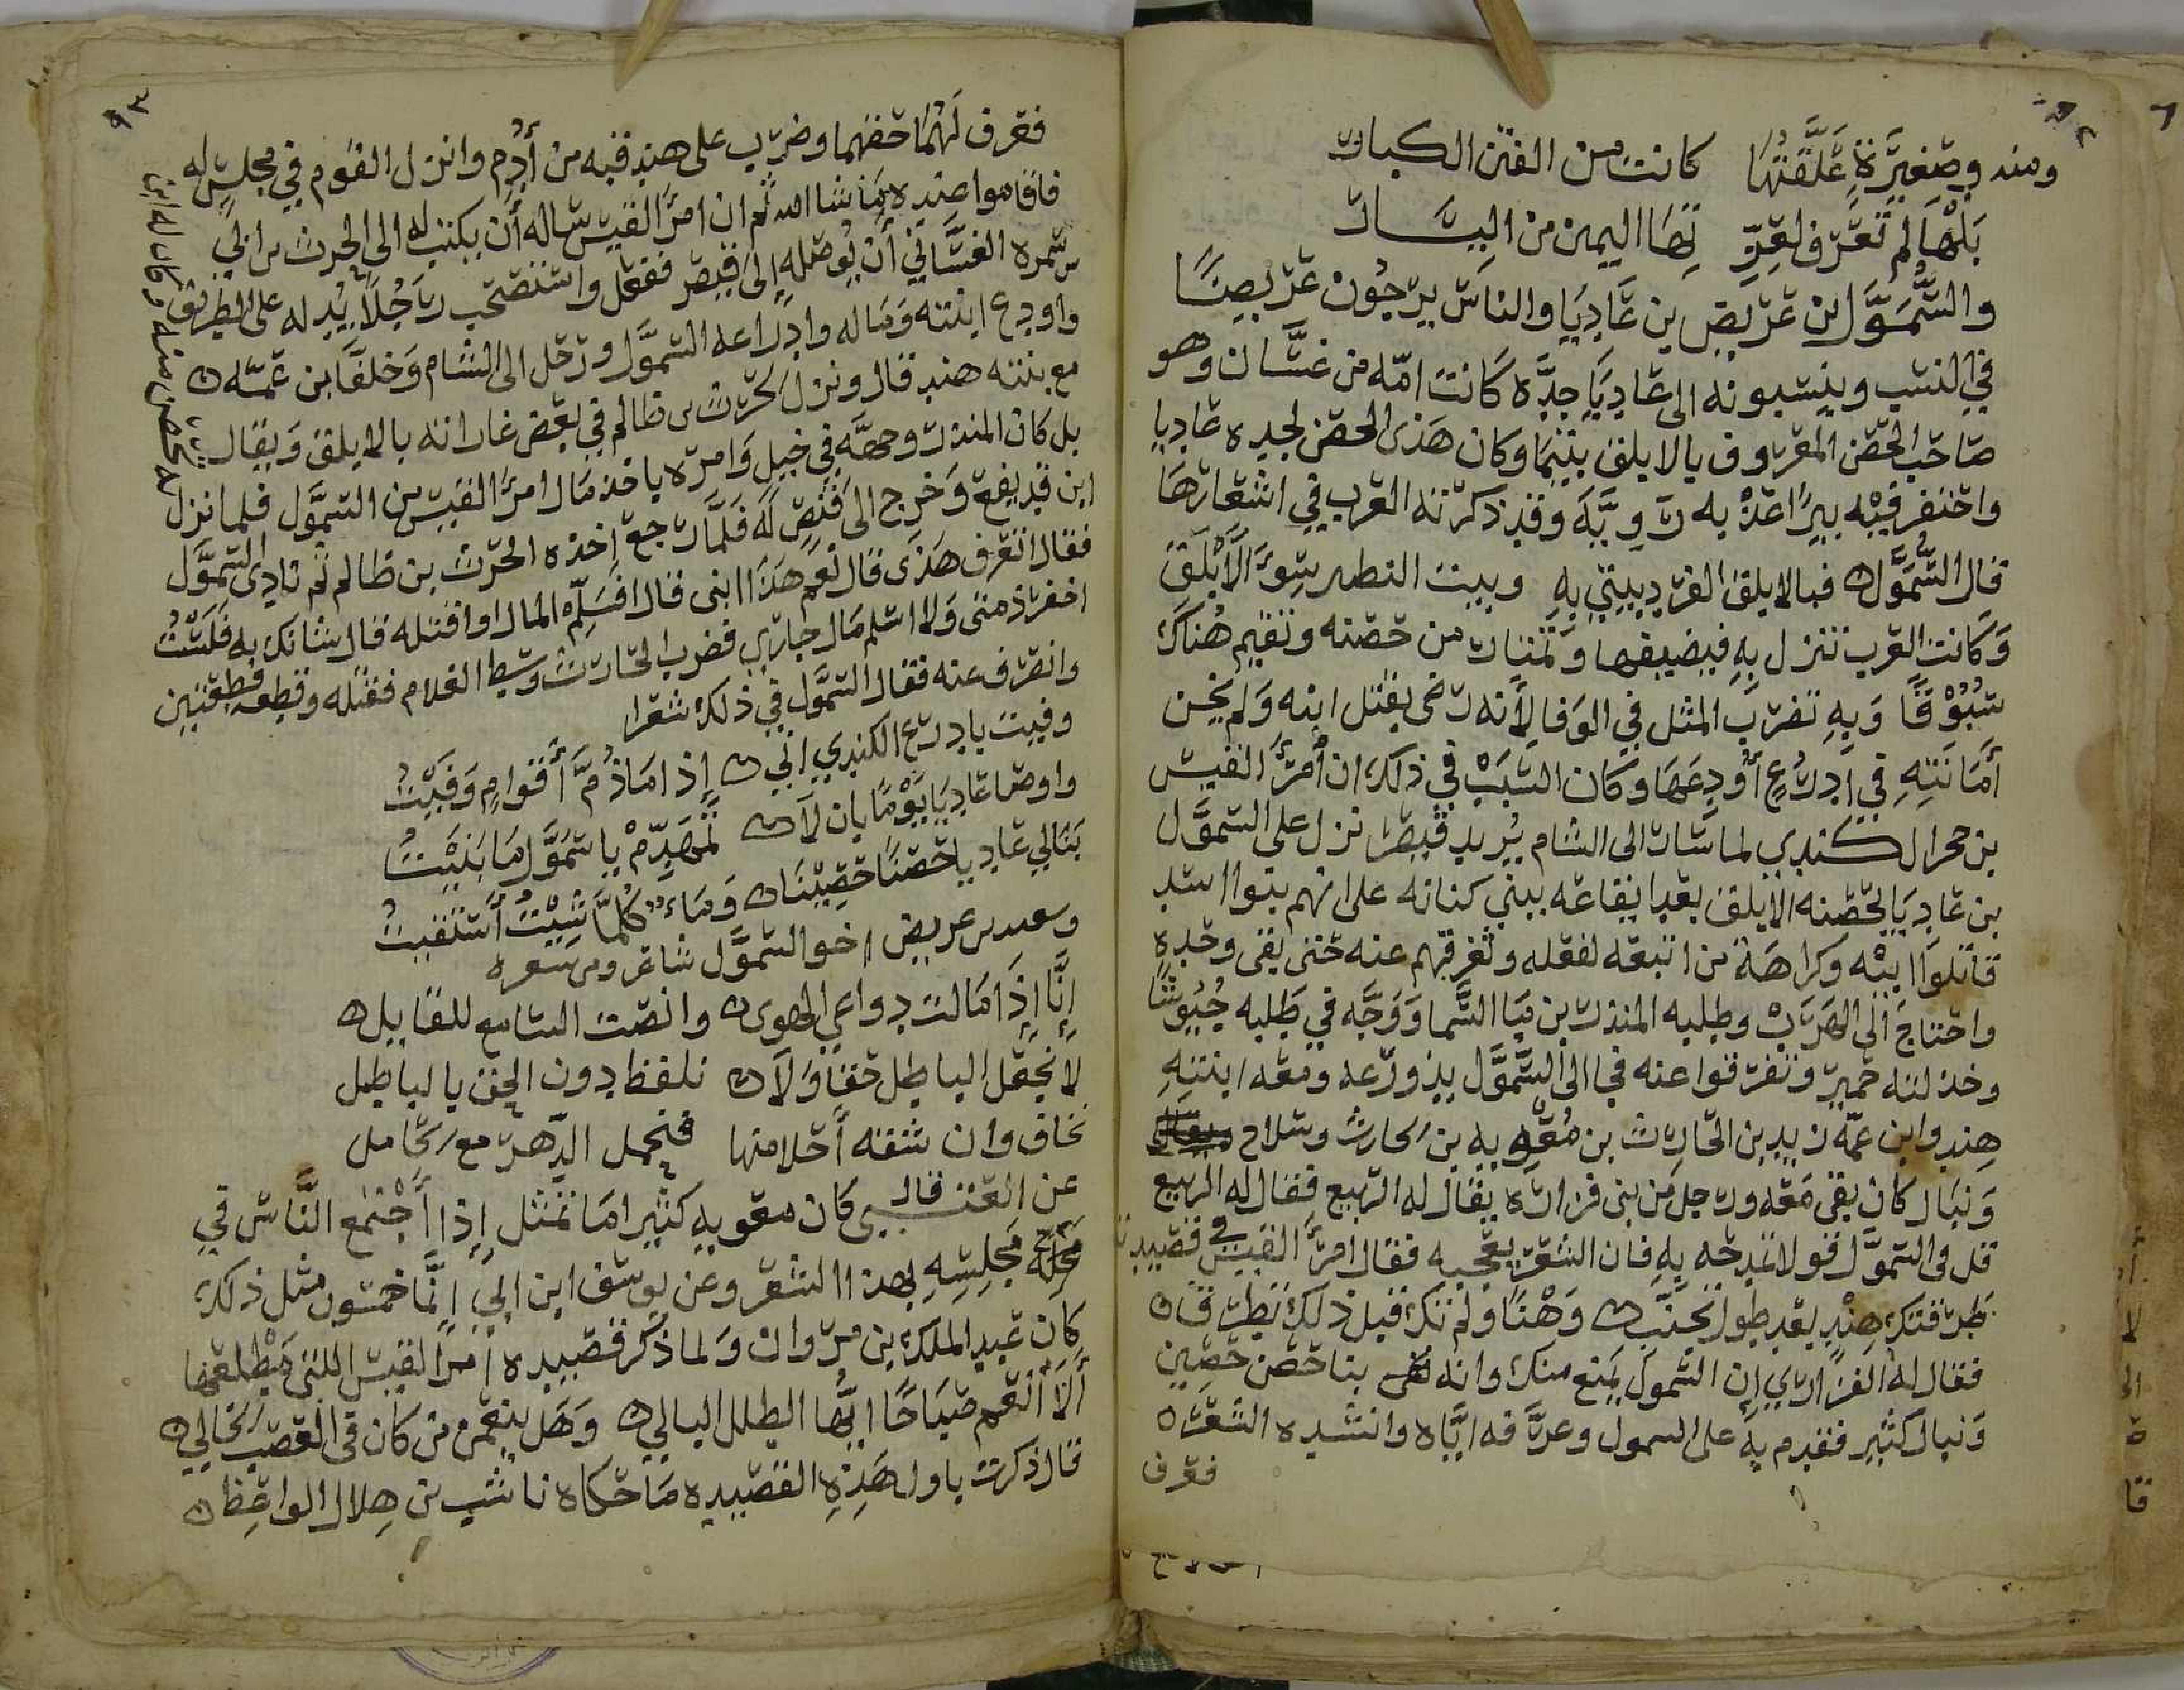 ومنه وصغيرة علقتها كانت من الفتن الكبار
بلها لم تعرف لغر تها اليمين من اليسار
والسَّموَّل بن عريض بن عاديا والناس يدرجون عريضا
في النسب وينسبونه الى عاديا جده كانت امّه من غسان وهو
صاحب الحصن المعروف بالابلق بتيما وكان هذى الحصن لجده عاديا
واحتفر فيه بيرا عذبه روِيَّه وقد ذكرته العرب في اشعارها
قال السَّموَّل فبالابلق الفرد بيتي به وبيت النظير سوى الابلق
وكانت العرب تنزل به فيضيفها وتمتار من حصنه وتقيم هناك
سُوْقًا وبه تضرب المثل في الوفا لأنه رضى بقتل ابنه ولم يخن
أمانته في ادرُع أودعها وكان السبب في ذلك ان أمرؤ القيس
بن حجر الكندي لما سار الى الشام يريد قيصر نزل على السموَّل
بن عاديا بحصنه الابلق بعد ايقاعه ببني كنانه على انهم بنوا اسد
قاتلوا ابيه وكراهة من اتبعه لفعله وتفرقهم عنه حتى بقى وحده
واحتاج الى الهرب وطلبه المنذر بن ما السما ووجّه في طلبه جيوشا
وخذلته حمير وتفرقوا عنه فجا الى السموَّل ومعه ابنته
هند وابن عمّه يزيد بن الحارث بن معويه بن الحارث وسلاح
ومال كان بقى معه ورجل من بنى فزاره يقال له الربيع فقال له الربيع
قل فى السموَّل قولا تمدحه به فان الشعر يعجبه فقال امرؤ القيس قصيده
طرقتك هند بعد طول تجنب وهنا ولم تك قبل ذلك تطرق
فقال له الفزاري إن السمول يمنع منك وانه بنا حصن حصين
ومال كثير فقدم به على السمول وعرَّفه ايَّاه وانشده الشعر
فعرف
٩٣
فعرف لهما حقهما وضرب على هند قبه من أدم وانزل القوم في مجلس له
فاقاموا عنده ما شا الله ثم ان امرؤ القيس ساله أن يكتب له الى الحرث بن ابي
شمره الغسَّاني أن يوصله إلى قيصر ففعل واستصحب رجلا يدله على الطريق
واودع ابنته وماله وادراعه السموَّل ورحل الى الشام وخلف ابن عمّه
مع بنته هند قال ونزل الحرث بن ظالم في بعض غاراته بالابلق ويقال
بل كان المنذر وجهه في خيل وامره ياخذ مال امرؤ القيس من السموَّل فلما نزل
ابن قد يفع وخرج الى قنص له فلما رجع اخذه الحرث بن ظالم ثم نادى السموَّل
فقال اتعرف هذى قال نعم هذا ابنى قال افسلم المال او اقتله قال شانك به فلست
اخفر ذمتى ولا اسلم مال جاري فضرب الحارث وسط الغلام فقتله وقطعه قطعتين
وانصرف عنه فقال السموَّل في ذلك شعرا
وفيت بادرع الكندي اني إذا ما ذُمَّ أقوام وفيتُ
واوصا عاديا يوما بان لا تهدّم يا سموَّل ما بنيتُ
بنا لي عاديا حصنا حصينا وماء كلما شيْتُ أستقيت
وسعد بن عريض اخو السموَّل شاعر ومن شعره
إنَّا إذا مالت دواعي الهوى وانصت السامع للقايل
لا نجعل الباطل حقا ولا نلفظ دون الحق بالباطل
نخاف وان تسفه أحلامنا فنحمل الدهر مع الحامل
عن العتبي قال كان معويه كثيرا ما تمثل إذا أجتمع النَّاس في
مجلسه بهذا الشعر وعن يوسف ابن
كان عبد الملك بن مروان ولما ذكر قصيده امرؤ القيس اللتى مطلعها
ألا أنعم صباحًا ايُّها الطلل البالي وهل ينعمن من كان في العصر الخالي
قال ذكرت باول هذه القصيده ما حكاه ناشب بن هلال الواعظ